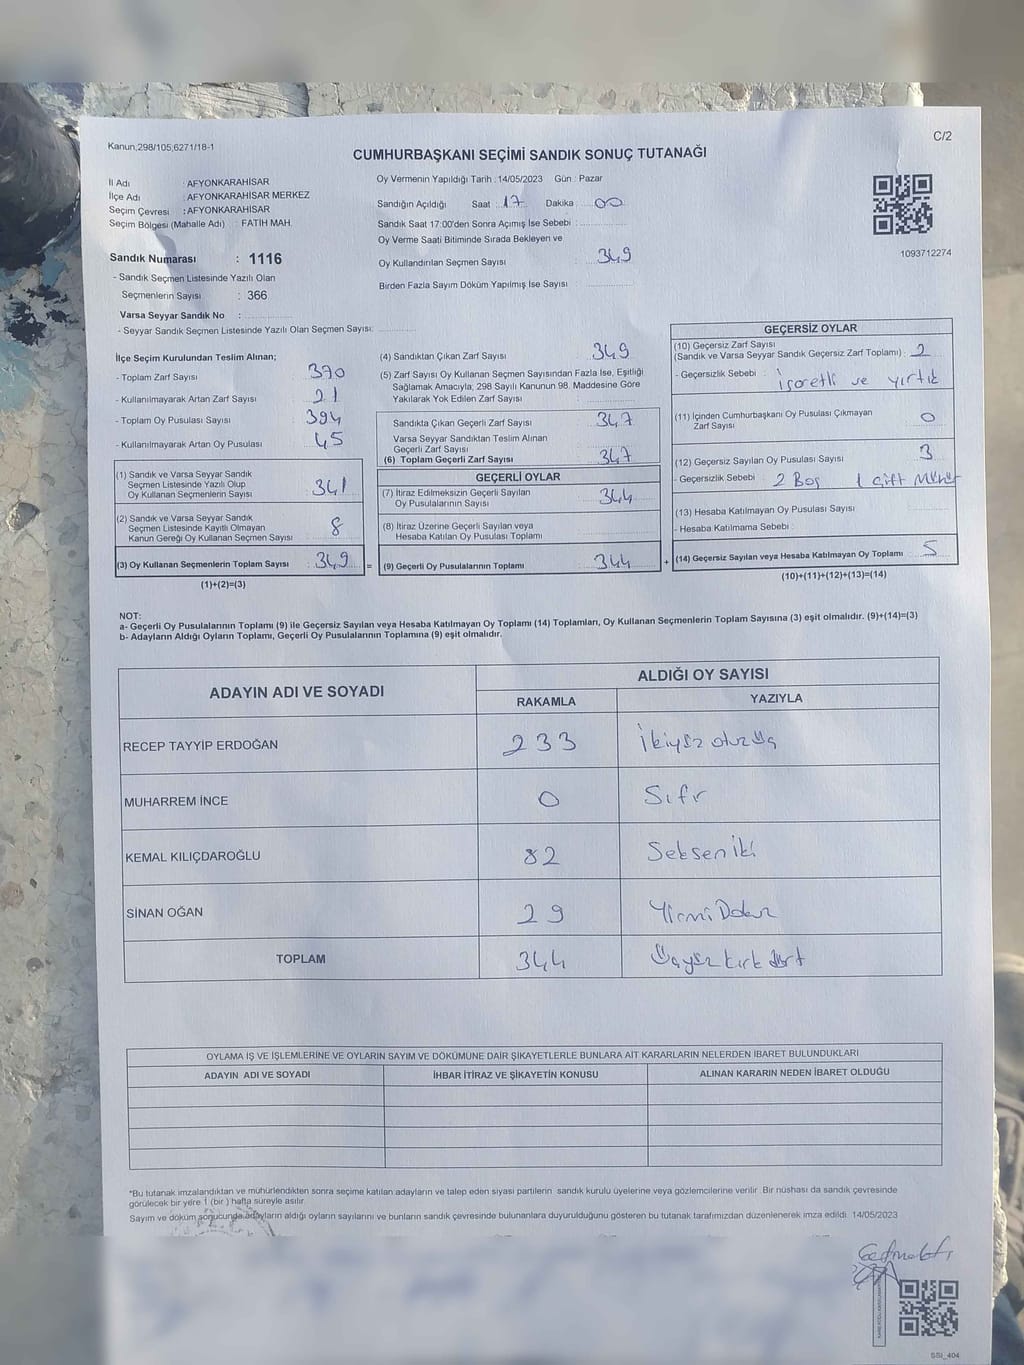 Kanun,298/105,6271/18-1
C/2
CUMHURBAŞKANI SEÇİMİ SANDIK SONUÇ TUTANAĞI
İl Adı : AFYONKARAHİSAR
İlçe Adı : AFYONKARAHİSAR MERKEZ
Seçim Çevresi : AFYONKARAHİSAR
Seçim Bölgesi (Mahalle Adı) : FATİH MAH.
Sandık Numarası : 1116
- Sandık Seçmen Listesinde Yazılı Olan
Seçmenlerin Sayısı : 366
Varsa Seyyar Sandık No :
- Seyyar Sandık Seçmen Listesinde Yazılı Olan Seçmen Sayısı:
Oy Vermenin Yapıldığı Tarih : 14/05/2023 Gün : Pazar
Sandığın Açıldığı Saat : 17 Dakika : 00
Sandık Saat 17:00'den Sonra Açımış İse Sebebi :
Oy Verme Saati Bitiminde Sırada Bekleyen ve
Oy Kullandırılan Seçmen Sayısı : 349
Birden Fazla Sayım Döküm Yapılmış İse Sayısı :
1093712274
İlçe Seçim Kurulundan Teslim Alınan;
- Toplam Zarf Sayısı : 370
- Kullanılmayarak Artan Zarf Sayısı : 21
- Toplam Oy Pusulası Sayısı : 394
- Kullanılmayarak Artan Oy Pusulası : 45
(1) Sandık ve Varsa Seyyar Sandık
Seçmen Listesinde Yazılı Olup
Oy Kullanan Seçmenlerin Sayısı : 341
(2) Sandık ve Varsa Seyyar Sandık
Seçmen Listesinde Kayıtlı Olmayan
Kanun Gereği Oy Kullanan Seçmen Sayısı : 8
(3) Oy Kullanan Seçmenlerin Toplam Sayısı : 349 =
(1)+(2)=(3)
(4) Sandıktan Çıkan Zarf Sayısı : 349
(5) Zarf Sayısı Oy Kullanan Seçmen Sayısından Fazla İse, Eşitliği
Sağlamak Amacıyla; 298 Sayılı Kanunun 98. Maddesine Göre
Yakılarak Yok Edilen Zarf Sayısı :
Sandıkta Çıkan Geçerli Zarf Sayısı : 347
Varsa Seyyar Sandıktan Teslim Alınan
Geçerli Zarf Sayısı :
(6) Toplam Geçerli Zarf Sayısı : 347
GEÇERLİ OYLAR
(7) İtiraz Edilmeksizin Geçerli Sayılan
Oy Pusulalarının Sayısı : 344
(8) İtiraz Üzerine Geçerli Sayılan veya
Hesaba Katılan Oy Pusulası Toplamı :
(9) Geçerli Oy Pusulalarının Toplamı : 344 +
GEÇERSİZ OYLAR
(10) Geçersiz Zarf Sayısı
(Sandık ve Varsa Seyyar Sandık Geçersiz Zarf Toplamı) : 2
- Geçersizlik Sebebi : İşaretli ve yırtık
(11) İçinden Cumhurbaşkanı Oy Pusulası Çıkmayan
Zarf Sayısı : 0
(12) Geçersiz Sayılan Oy Pusulası Sayısı : 3
- Geçersizlik Sebebi : 2 Boş 1 Çift Mühür
(13) Hesaba Katılmayan Oy Pusulası Sayısı :
- Hesaba Katılmama Sebebi :
(14) Geçersiz Sayılan veya Hesaba Katılmayan Oy Toplamı : 5
(10)+(11)+(12)+(13)=(14)
NOT:
a- Geçerli Oy Pusulalarının Toplamı (9) ile Geçersiz Sayılan veya Hesaba Katılmayan Oy Toplamı (14) Toplamları, Oy Kullanan Seçmenlerin Toplam Sayısına (3) eşit olmalıdır. (9)+(14)=(3)
b- Adayların Aldığı Oyların Toplamı, Geçerli Oy Pusulalarının Toplamına (9) eşit olmalıdır.
ADAYIN ADI VE SOYADI
ALDIĞI OY SAYISI
RAKAMLA YAZIYLA
RECEP TAYYİP ERDOĞAN 233 İkiyüz otuz üç
MUHARREM İNCE 0 Sıfır
KEMAL KILIÇDAROĞLU 82 Seksen iki
SİNAN OĞAN 29 Yirmi Dokuz
TOPLAM 344 Üçyüz kırk dört
OYLAMA İŞ VE İŞLEMLERİNE VE OYLARIN SAYIM VE DÖKÜMÜNE DAİR ŞİKAYETLERLE BUNLARA AİT KARARLARIN NELERDEN İBARET BULUNDUKLARI
ADAYIN ADI VE SOYADI İHBAR İTİRAZ VE ŞİKAYETİN KONUSU ALINAN KARARIN NEDEN İBARET OLDUĞU
*Bu tutanak imzalandıktan ve mühürlendikten sonra seçime katılan adayların ve talep eden siyasi partilerin sandık kurulu üyelerine veya gözlemcilerine verilir. Bir nüshası da sandık çevresinde
görülecek bir yere 1 (bir ) hafta süreyle asılır.
Sayım ve döküm sonucunda adayların aldığı oyların sayılarını ve bunların sandık çevresinde bulunanlara duyurulduğunu gösteren bu tutanak tarafımızdan düzenlenerek imza edildi. 14/05/2023
SSI_404